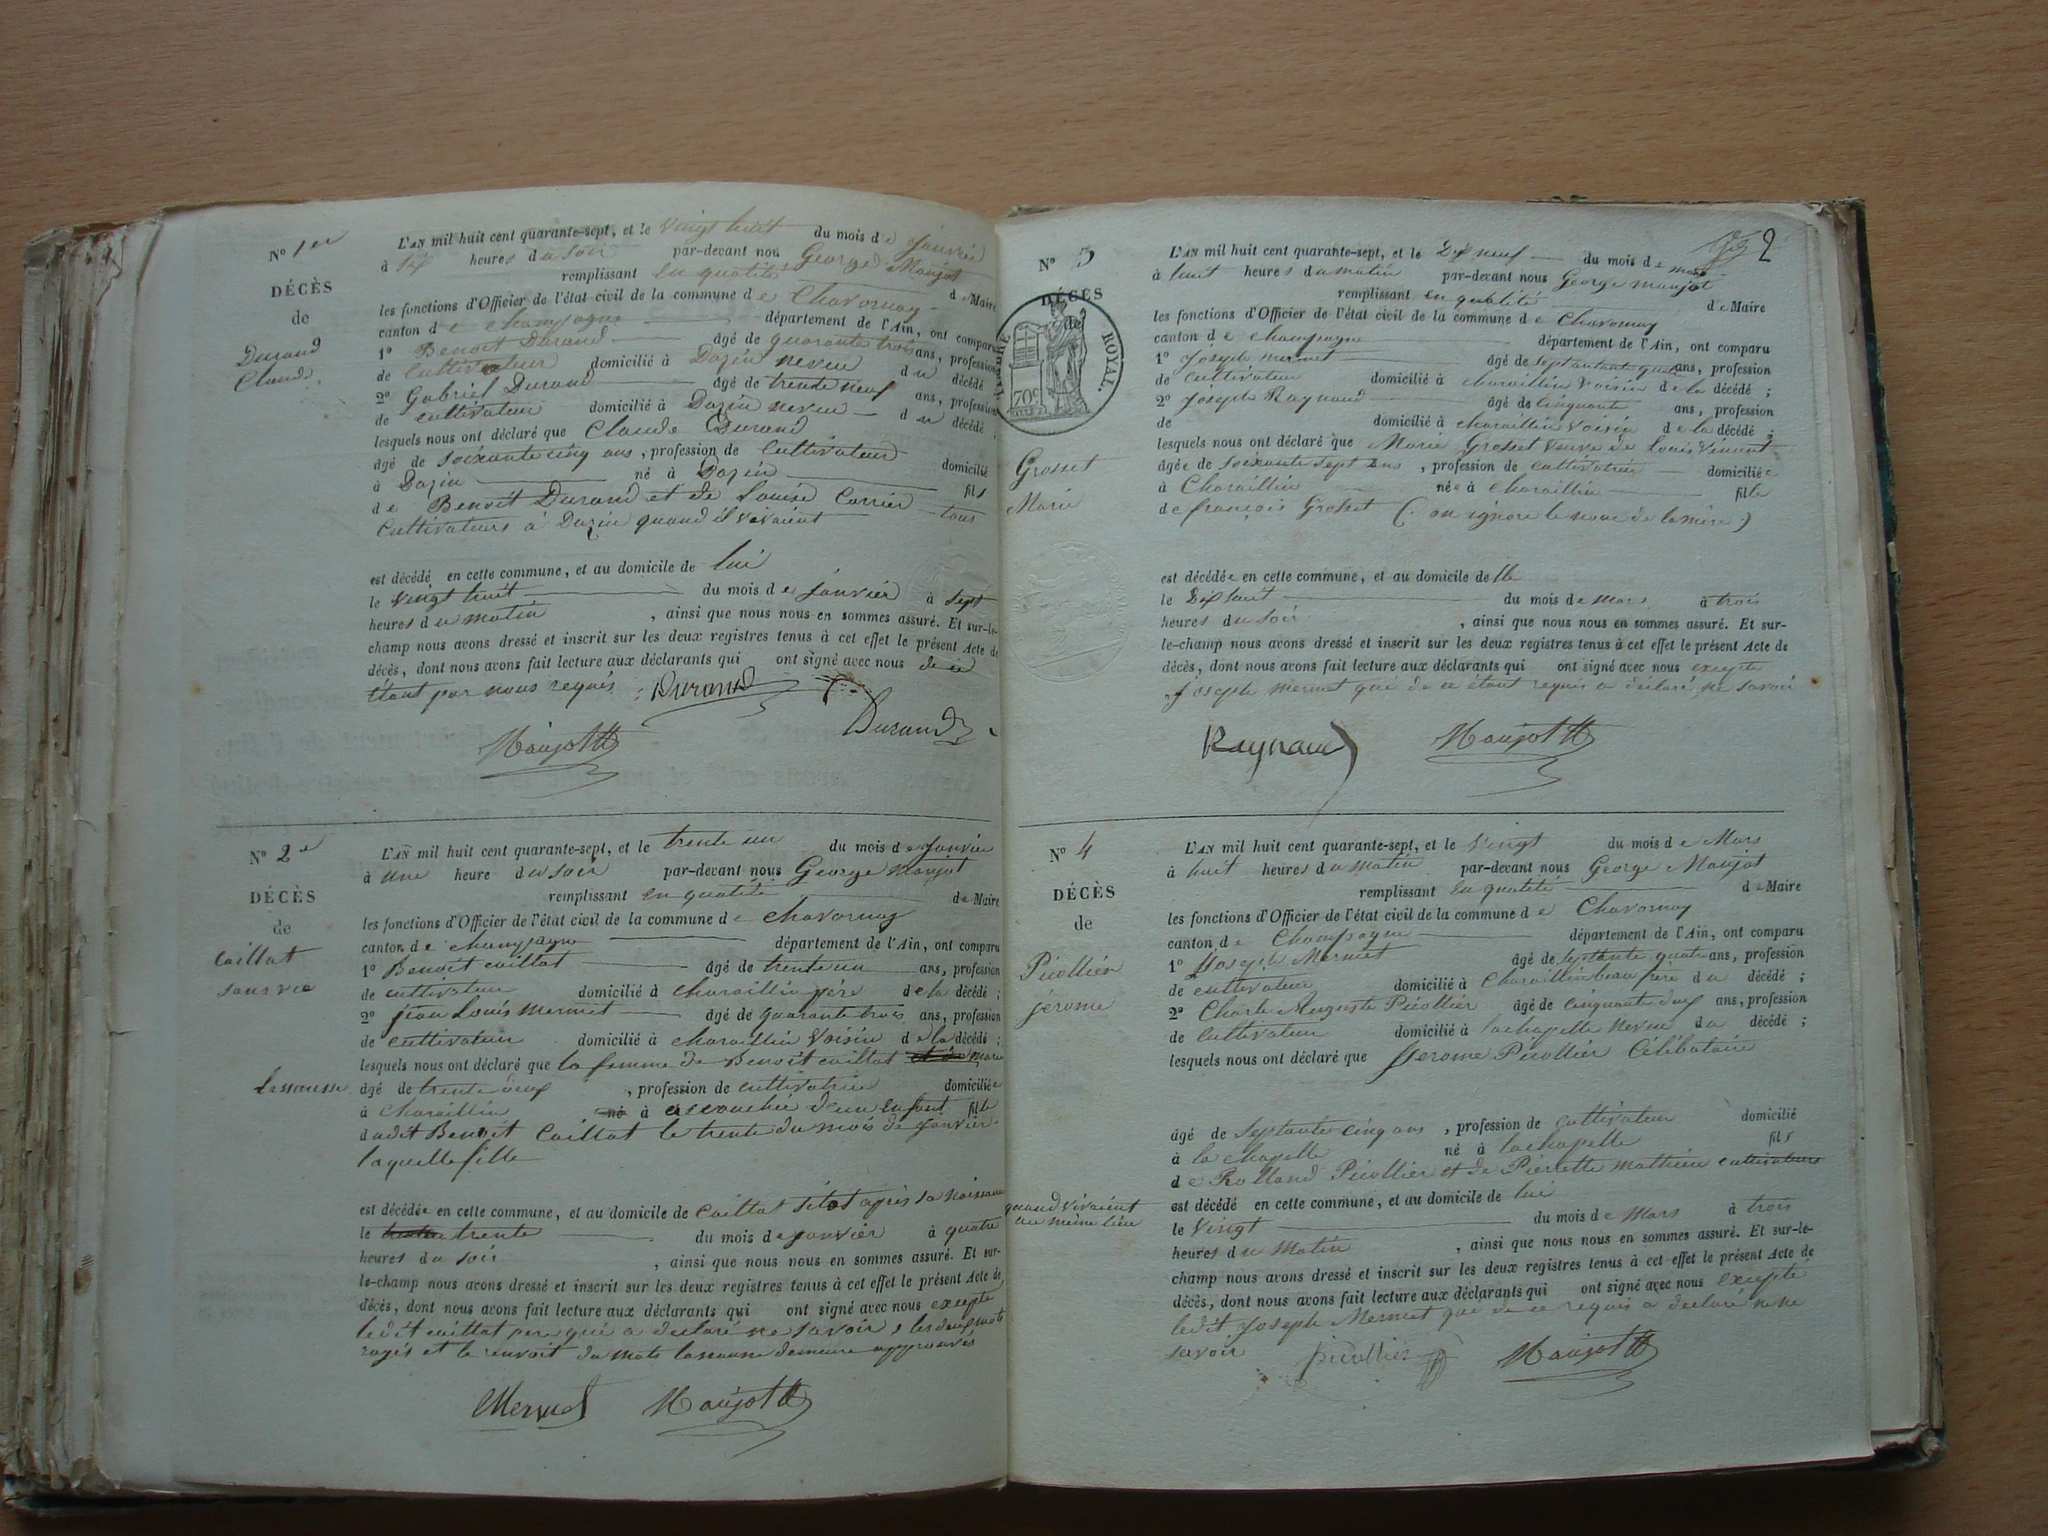 N° 1er
DÉCÈS
de
Durand
Claude
L'AN mil huit cent quarante-sept, et le vingt huit du mois de janvier
à six heures du soir par-devant nou George Maujot
remplissant en qualité de Maire
les fonctions d'Officier de l'état civil de la commune de Chavornay
canton de Champagne département de l'Ain, ont comparu
1° Benoit Durand âgé de quarante trois ans, profession
de cultivateur domicilié à Dazin neveu du décédé
2° Gabriel Durand âgé de trente neuf ans, profession
de cultivateur domicilié à Dazin neveu du décédé
lesquels nous ont déclaré que Claude Durand
âgé de soixante cinq ans, profession de cultivateur domicilié
à Dazin né à Dazin fils
de Benoit Durand et de Louise Carrier tous
cultivateurs à Dazin quand il vivaient
est décédé en cette commune, et au domicile de lui
le vingt huit du mois de janvier à sept
heures du matin, ainsi que nous nous en sommes assuré. Et sur-le-
champ nous avons dressé et inscrit sur les deux registres tenus à cet effet le présent Acte de
décès, dont nous avons fait lecture aux déclarants qui ont signé avec nous de ce
étant par nous requis Durand
Durand
Maujot
N° 2e
DÉCÈS
de
Caillat
sans vie
L'AN mil huit cent quarante-sept, et le trente un du mois de janvier
à une heure du soir par-devant nous George Maujot
remplissant en qualité de Maire
les fonctions d'Officier de l'état civil de la commune de Chavornay
canton de Champagne département de l'Ain, ont comparu
1° Benoit Caillat âgé de trente un ans, profession
de cultivateur domicilié à Charaillin père de la décédé ;
2° jean Louis Mermet âgé de quarante trois ans, profession
de cultivateur domicilié à Charaillin voisin de la décédé ;
lesquels nous ont déclaré que la femme de Benoit Caillat et de Marie
Lessausse âgé de trente neuf, profession de cultivatrice domiciliée
à Charaillin né à accouchée d'un enfant fille
dudit Benoit Caillat le trente du mois de janvier
laquelle fille
est décédée en cette commune, et au domicile de Caillat sitot après sa naissance
le trente du mois de janvier à quatre
heures du soir, ainsi que nous nous en sommes assuré. Et sur-
le-champ nous avons dressé et inscrit sur les deux registres tenus à cet effet le présent Acte de
décès, dont nous avons fait lecture aux déclarants qui ont signé avec nous excepté
ledit Caillat pere qui a declaré ne savoir, les deux mots
rayés et le renvoit du mots Lessausse demeure approuvés
Mermet Maujot
2
N° 3
DÉCÈS
de
ROYAL.
70c
Grosset
Marie
L'AN mil huit cent quarante-sept, et le Dix neuf du mois de mars
à huit heures du matin par-devant nous George Maujot
remplissant en qualité de Maire
les fonctions d'Officier de l'état civil de la commune de Chavornay
canton de Champagne département de l'Ain, ont comparu
1° Joseph Mermet âgé de septante quatre ans, profession
de cultivateur domicilié à Charaillin voisin de la décédé ;
2° Joseph Raynaud âgé de cinquante ans, profession
de domicilié à Charaillin voisin de la décédé ;
lesquels nous ont déclaré que Marie Grosset veuve de Louis Vincent
âgée de soixante sept ans, profession de cultivatrice domiciliée
à Charaillin née à Charaillin fille
de françois Grosset (on ignore le nom de la mère)
est décédée en cette commune, et au domicile de elle
le Dix huit du mois de mars à trois
heures du soir, ainsi que nous nous en sommes assuré. Et sur-
le-champ nous avons dressé et inscrit sur les deux registres tenus à cet effet le présent Acte de
décès, dont nous avons fait lecture aux déclarants qui ont signé avec nous excepté
Joseph Mermet qui de ce étant requis a déclaré ne savoir
Raynaud Maujot
N° 4
DÉCÈS
de
Picollier
Jérome
L'AN mil huit cent quarante-sept, et le vingt du mois de Mars
à huit heures du matin par-devant nous George Maujot
remplissant en qualité de Maire
les fonctions d'Officier de l'état civil de la commune de Chavornay
canton de Champagne département de l'Ain, ont comparu
1° Joseph Mermet âgé de septante quatre ans, profession
de cultivateur domicilié à Charaillin beau pere du décédé ;
2° Charle Auguste Picollier âgé de cinquante deux ans, profession
de cultivateur domicilié à lachapelle neveu du décédé ;
lesquels nous ont déclaré que Jerome Picollier Célibataire
âgé de septante cinq ans, profession de cultivateur domicilié
à la chapelle né à lachapelle fils
de Rolland Picollier et de Pierrette Mathieu cultivateurs
quand vivaient
au même lieu
est décédé en cette commune, et au domicile de lui
le vingt du mois de Mars à trois
heures du Matin, ainsi que nous nous en sommes assuré. Et sur-le-
champ nous avons dressé et inscrit sur les deux registres tenus à cet effet le présent Acte de
décès, dont nous avons fait lecture aux déclarants qui ont signé avec nous excepté
ledit Joseph Mermet qui de ce requis a declaré ne
savoir picollier Maujot